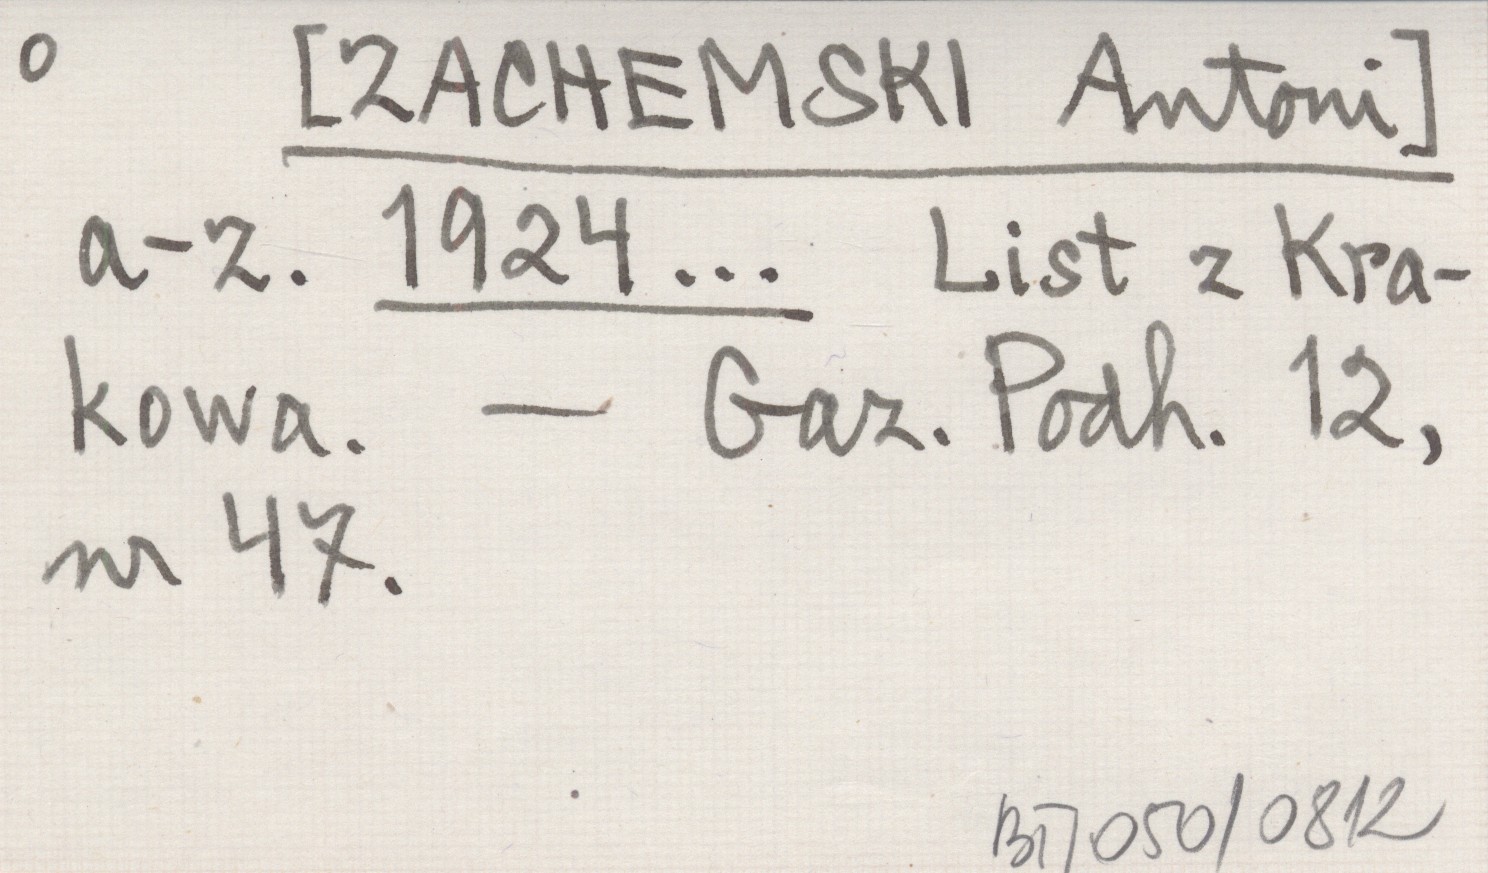 o [ZACHEMSKI Antoni]
a-z. 1924... List z Kra-
kowa. — Gaz. Podh. 12,
nr 47.
BT/050/0812